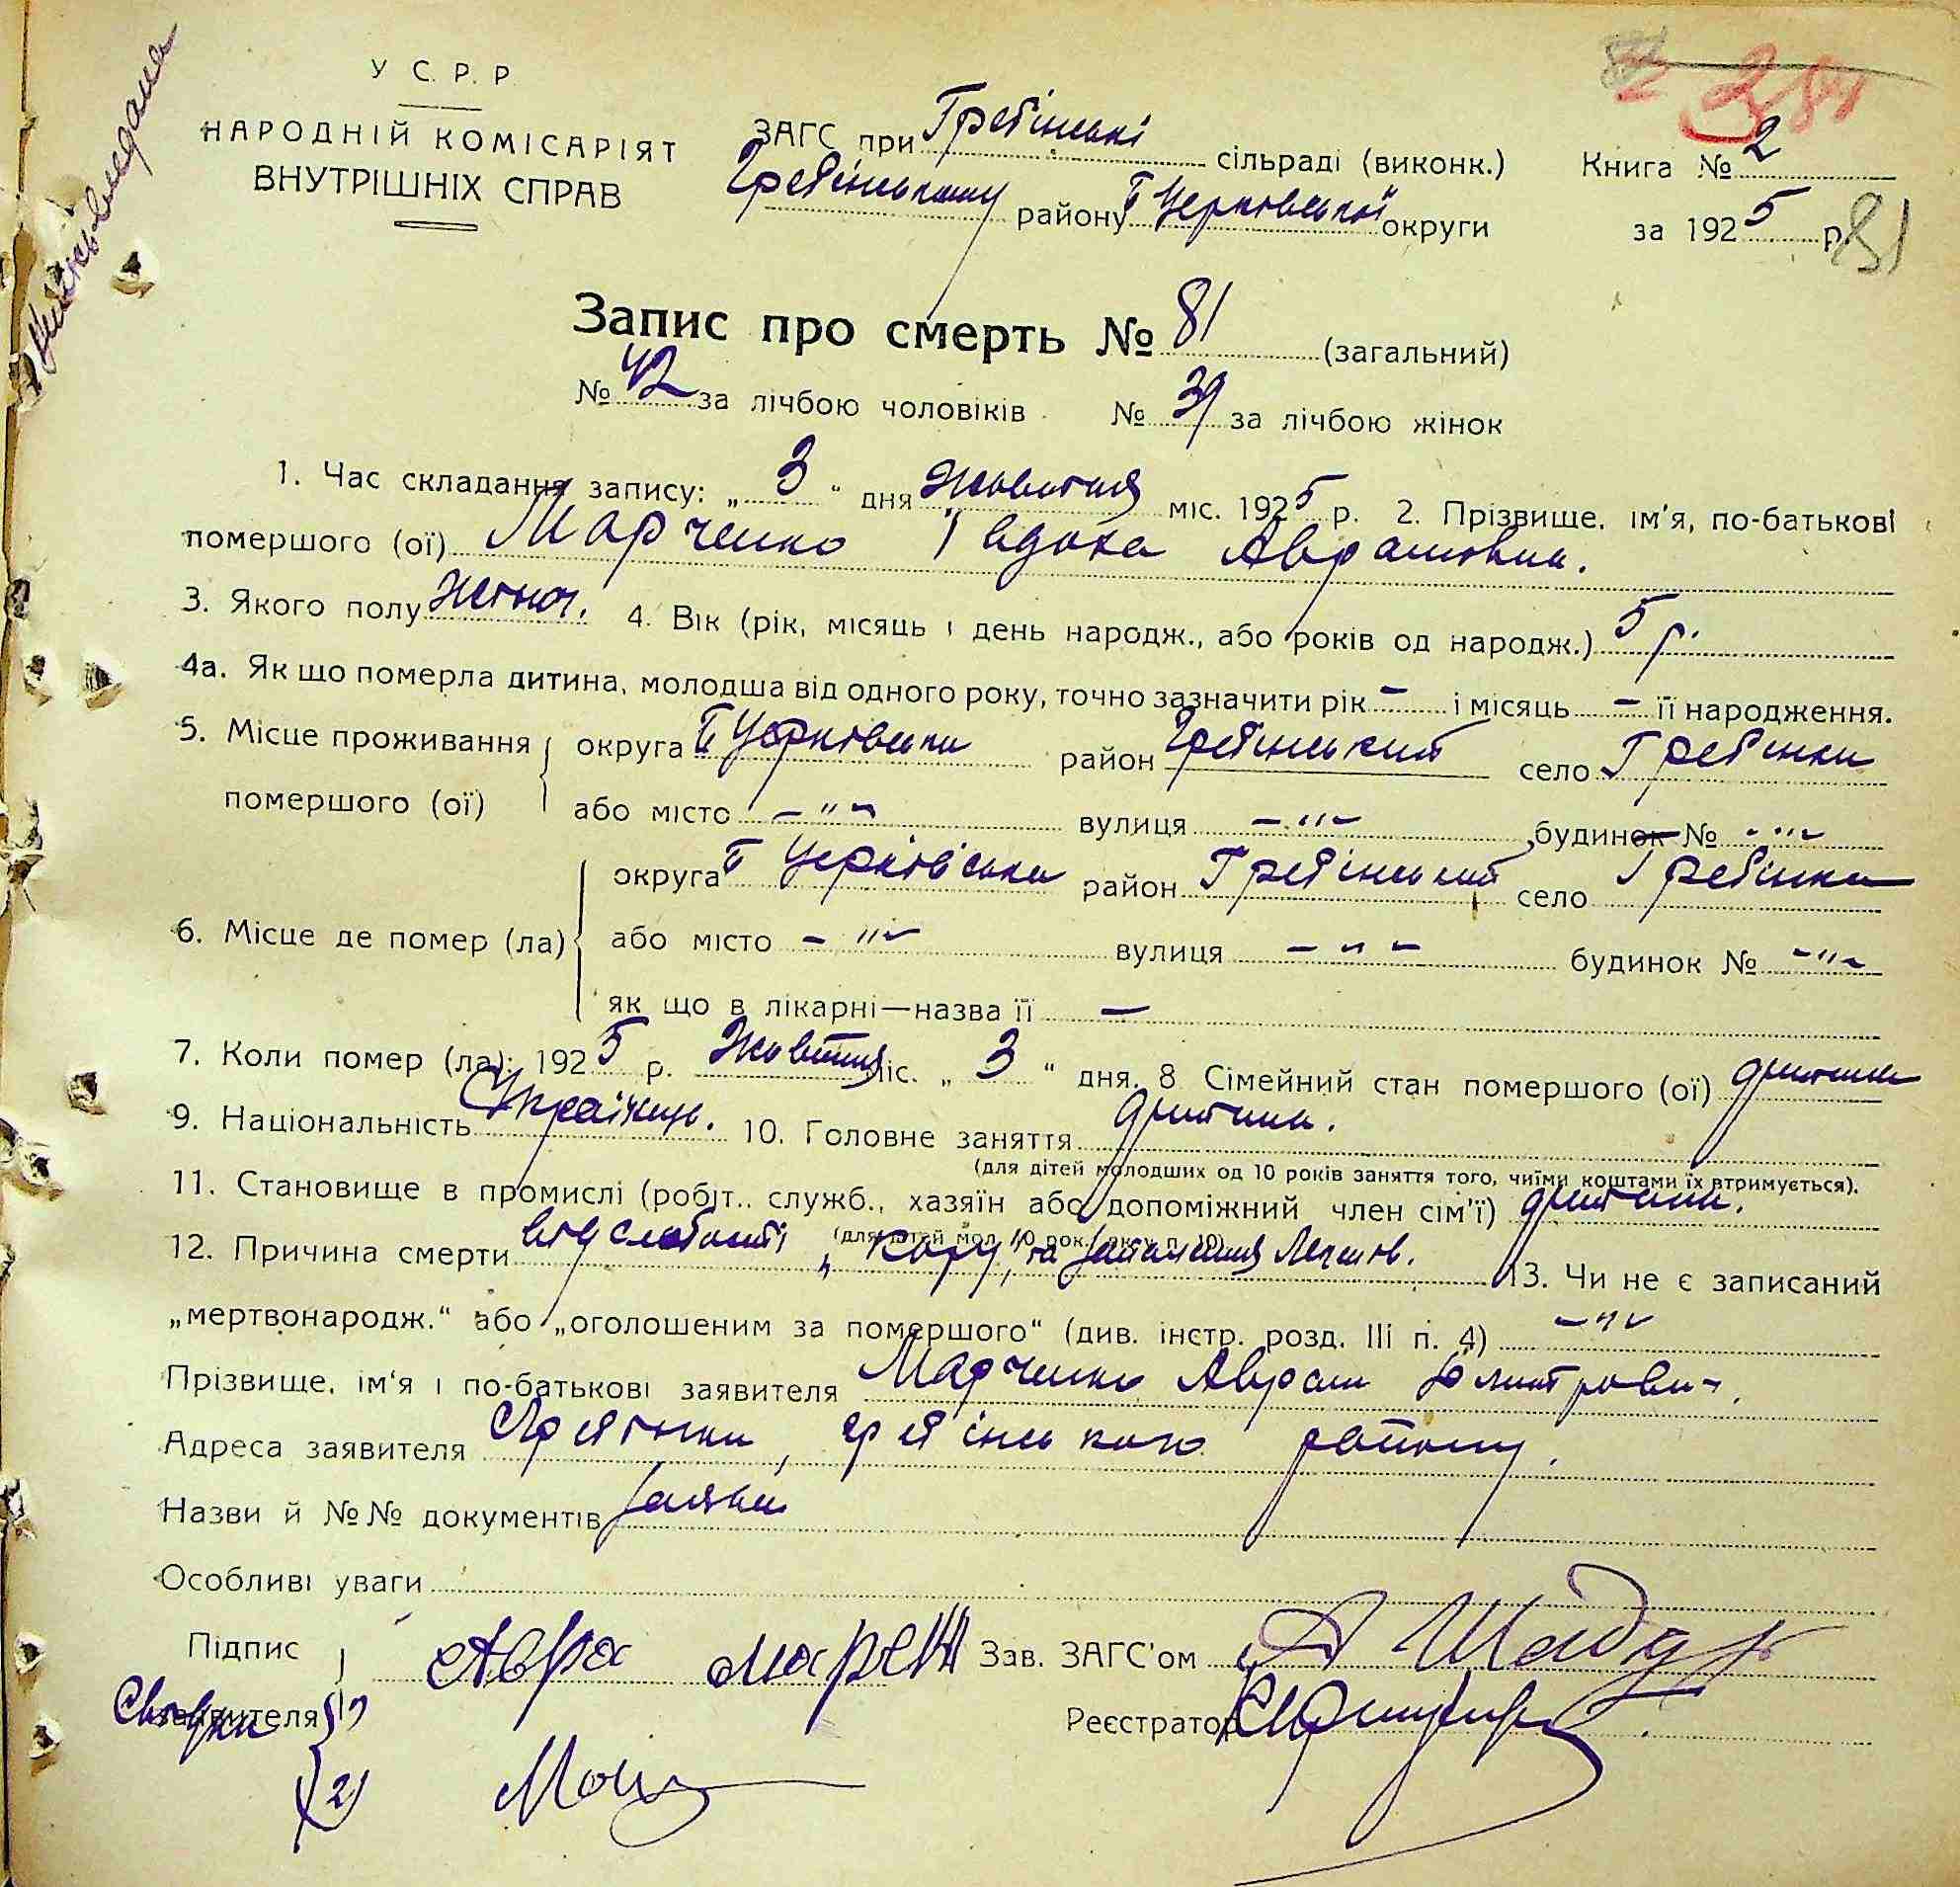 У С. Р. Р
НАРОДНІЙ КОМІСАРІЯТ
ВНУТРІШНІХ СПРАВ
ЗАГС при Гребінські сільраді (виконк.)
Гребінському району Б Церковської округи
Книга № 2
за 1925 р.
81
Запис про смерть № 81 (загальний)
№ 42 за лічбою чоловіків № 39 за лічбою жінок
1. Час складання запису: „ 3 “ дня Жовтня міс. 1925 р. 2. Прізвище, ім'я, по-батькові
помершого (ої) Марченко Явдоха Аврамовна.
3. Якого полу жіноч. 4. Вік (рік, місяць і день народж., або років од народж.) 5 р.
4а. Як що померла дитина, молодша від одного року, точно зазначити рік – і місяць – її народження.
5. Місце проживання помершого (ої) округа Б Церковська район Гребінський село Гребінки
або місто – „ – вулиця – „ – будинок № – „ –
6. Місце де помер (ла) округа Б Церківська район Гребінський село Гребінки
або місто – „ – вулиця – „ – будинок № – „ –
як що в лікарні—назва її –
7. Коли помер (ла): 1925 р. Жовтня міс. „ 3 “ дня. 8 Сімейний стан помершого (ої) дитина
9. Національність Українець. 10. Головне заняття дитина.
(для дітей молодших од 10 років заняття того, чиїми коштами їх втримується).
11. Становище в промислі (робіт.. служб., хазяїн або допоміжний член сім'ї) дитина.
(для дітей мол. 10 рок. як у п. 10)
12. Причина смерти від слабости „ кору „ та запалення Легенів. 13. Чи не є записаний
„мертвонародж.“ або „оголошеним за помершого“ (див. інстр. розд. III п. 4) – „ –
Прізвище, ім'я і по-батькові заявителя Марченко Аврам Дмитрович.
Адреса заявителя Гребінки, Гребінського району.
Назви й №№ документів Заява
Особливі уваги
Підпис заявителя Авра Марчен Зав. ЗАГС'ом
Свідки 1) Реєстратор
2)